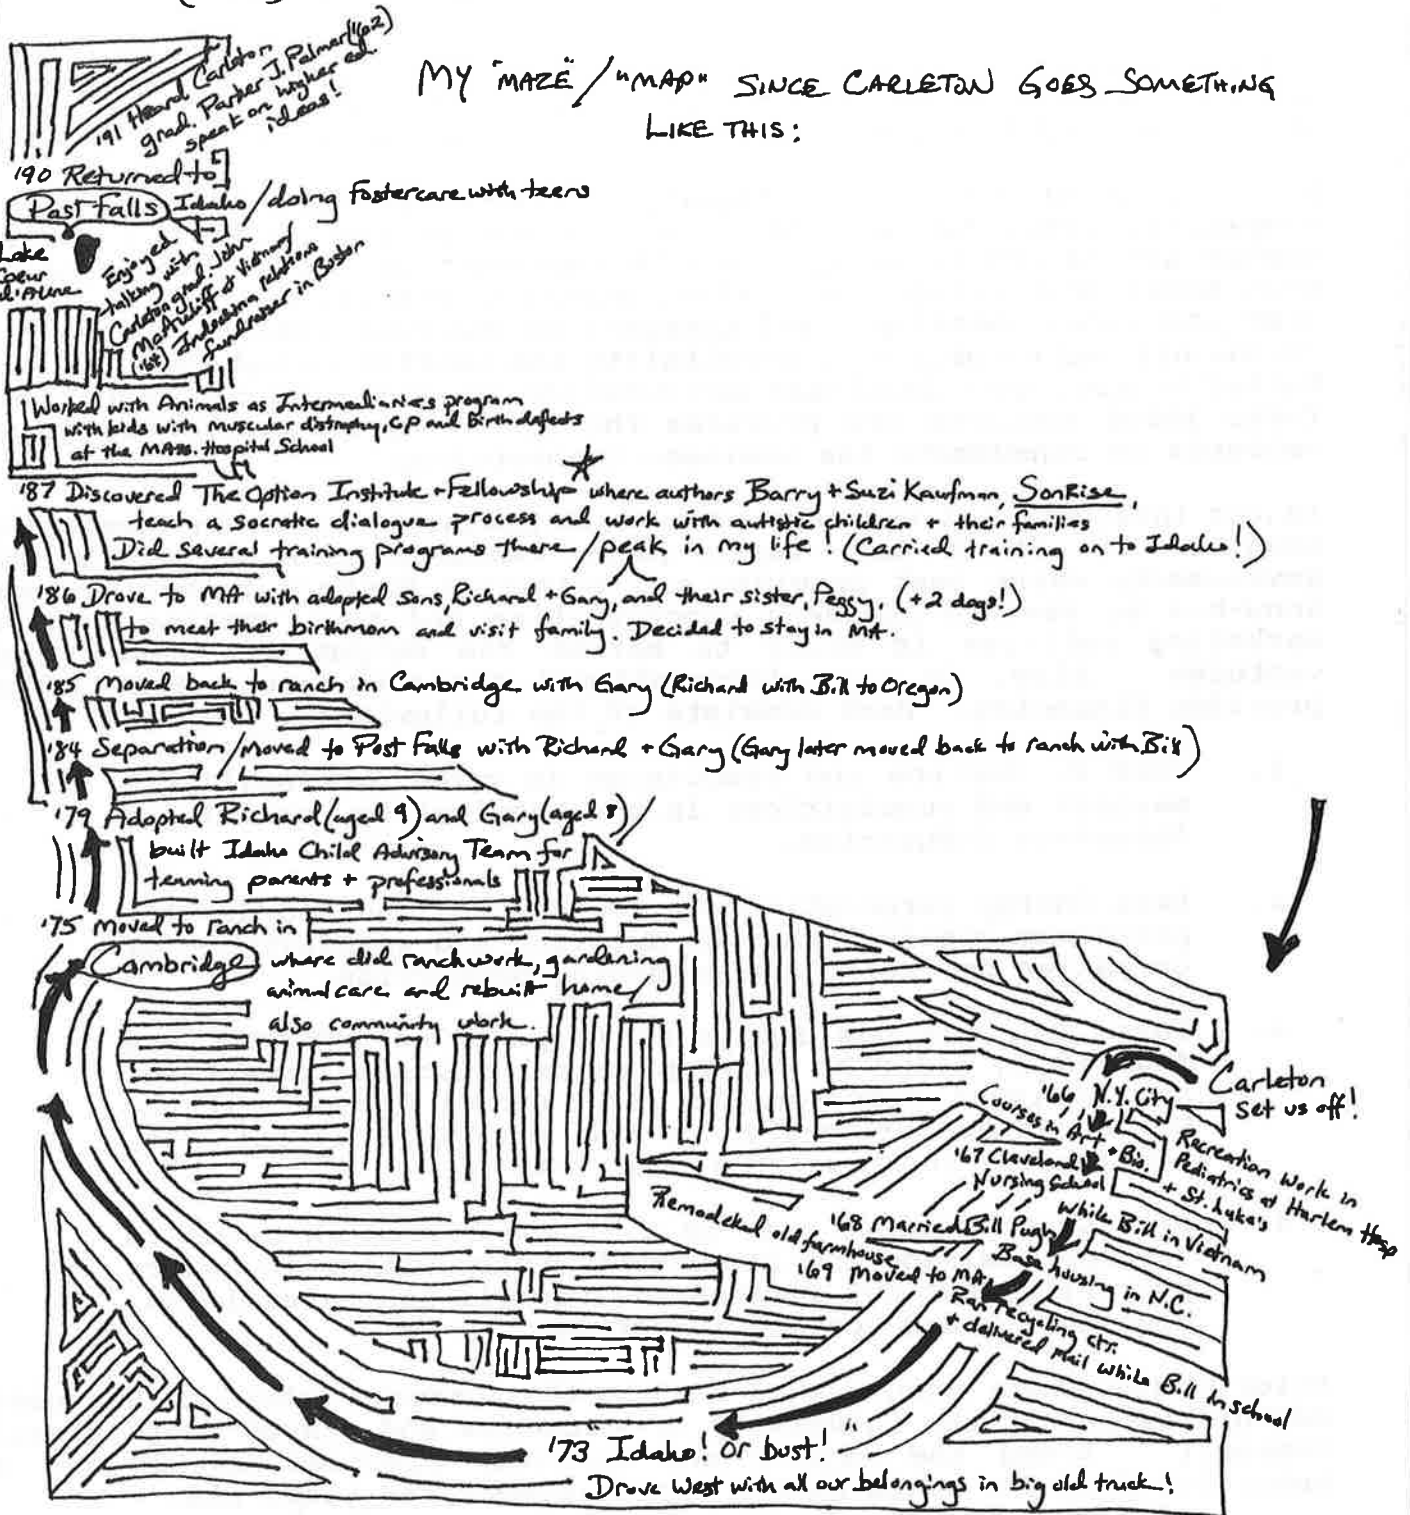 MY "MAZE" / "MAP" SINCE CARLETON GOES SOMETHING
LIKE THIS:
'91 Heard Carleton
grad. Parker J. Palmer ('62)
speak on higher ed.
ideas!
'90 Returned to
Post Falls Idaho / doing Fostercare with teens
Lake
Coeur
d'Alene
Enjoyed
talking with
Carleton grad. John
McAuliff at Vietnam/
('64) Indochina relations
fundraiser in Boston
Worked with Animals as Intermediaries program
with kids with muscular distrophy, CP and Birth defects
at the MASS. Hospital School
'87 Discovered The Option Institute + Fellowship where authors Barry + Suzi Kaufman, SonRise,
teach a Socratic dialogue process and work with autistic children + their families
Did several training programs there / peak in my life! (Carried training on to Idaho!)
'86 Drove to MA with adopted sons, Richard + Gary, and their sister, Peggy. (+ 2 dogs!)
to meet their birthmom and visit family. Decided to stay in MA.
'85 Moved back to ranch in Cambridge with Gary (Richard with Bill to Oregon)
'84 Separation / Moved to Post Falls with Richard + Gary (Gary later moved back to ranch with Bill)
'79 Adopted Richard (aged 9) and Gary (aged 8) /
built Idaho Child Advisory Team for
teaming parents + professionals
'75 Moved to ranch in
Cambridge where did ranchwork, gardening
animal care and rebuilt home /
also community work.
Carleton
set us off!
'66 N.Y. City
Recreation Work in
Pediatrics at Harlem Hosp
+ St. Luke's
Courses in Art
+ Bio.
'67 Cleveland
Nursing School
while Bill in Vietnam
'68 Married Bill Pugh
Base housing in N.C.
Remodeled old farmhouse
'69 Moved to MA
Ran recycling ctr.
+ delivered mail while Bill in school
'73 "Idaho! or bust!"
Drove West with all our belongings in big old truck!